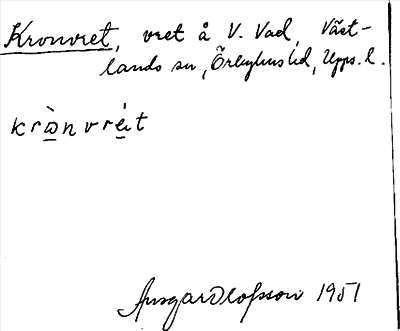 Kronvret, vret å V. Vad, Väst-
lands sn, Örbyhus hd, Upps. l.
krònvréit
Ansgar Olofsson 1951